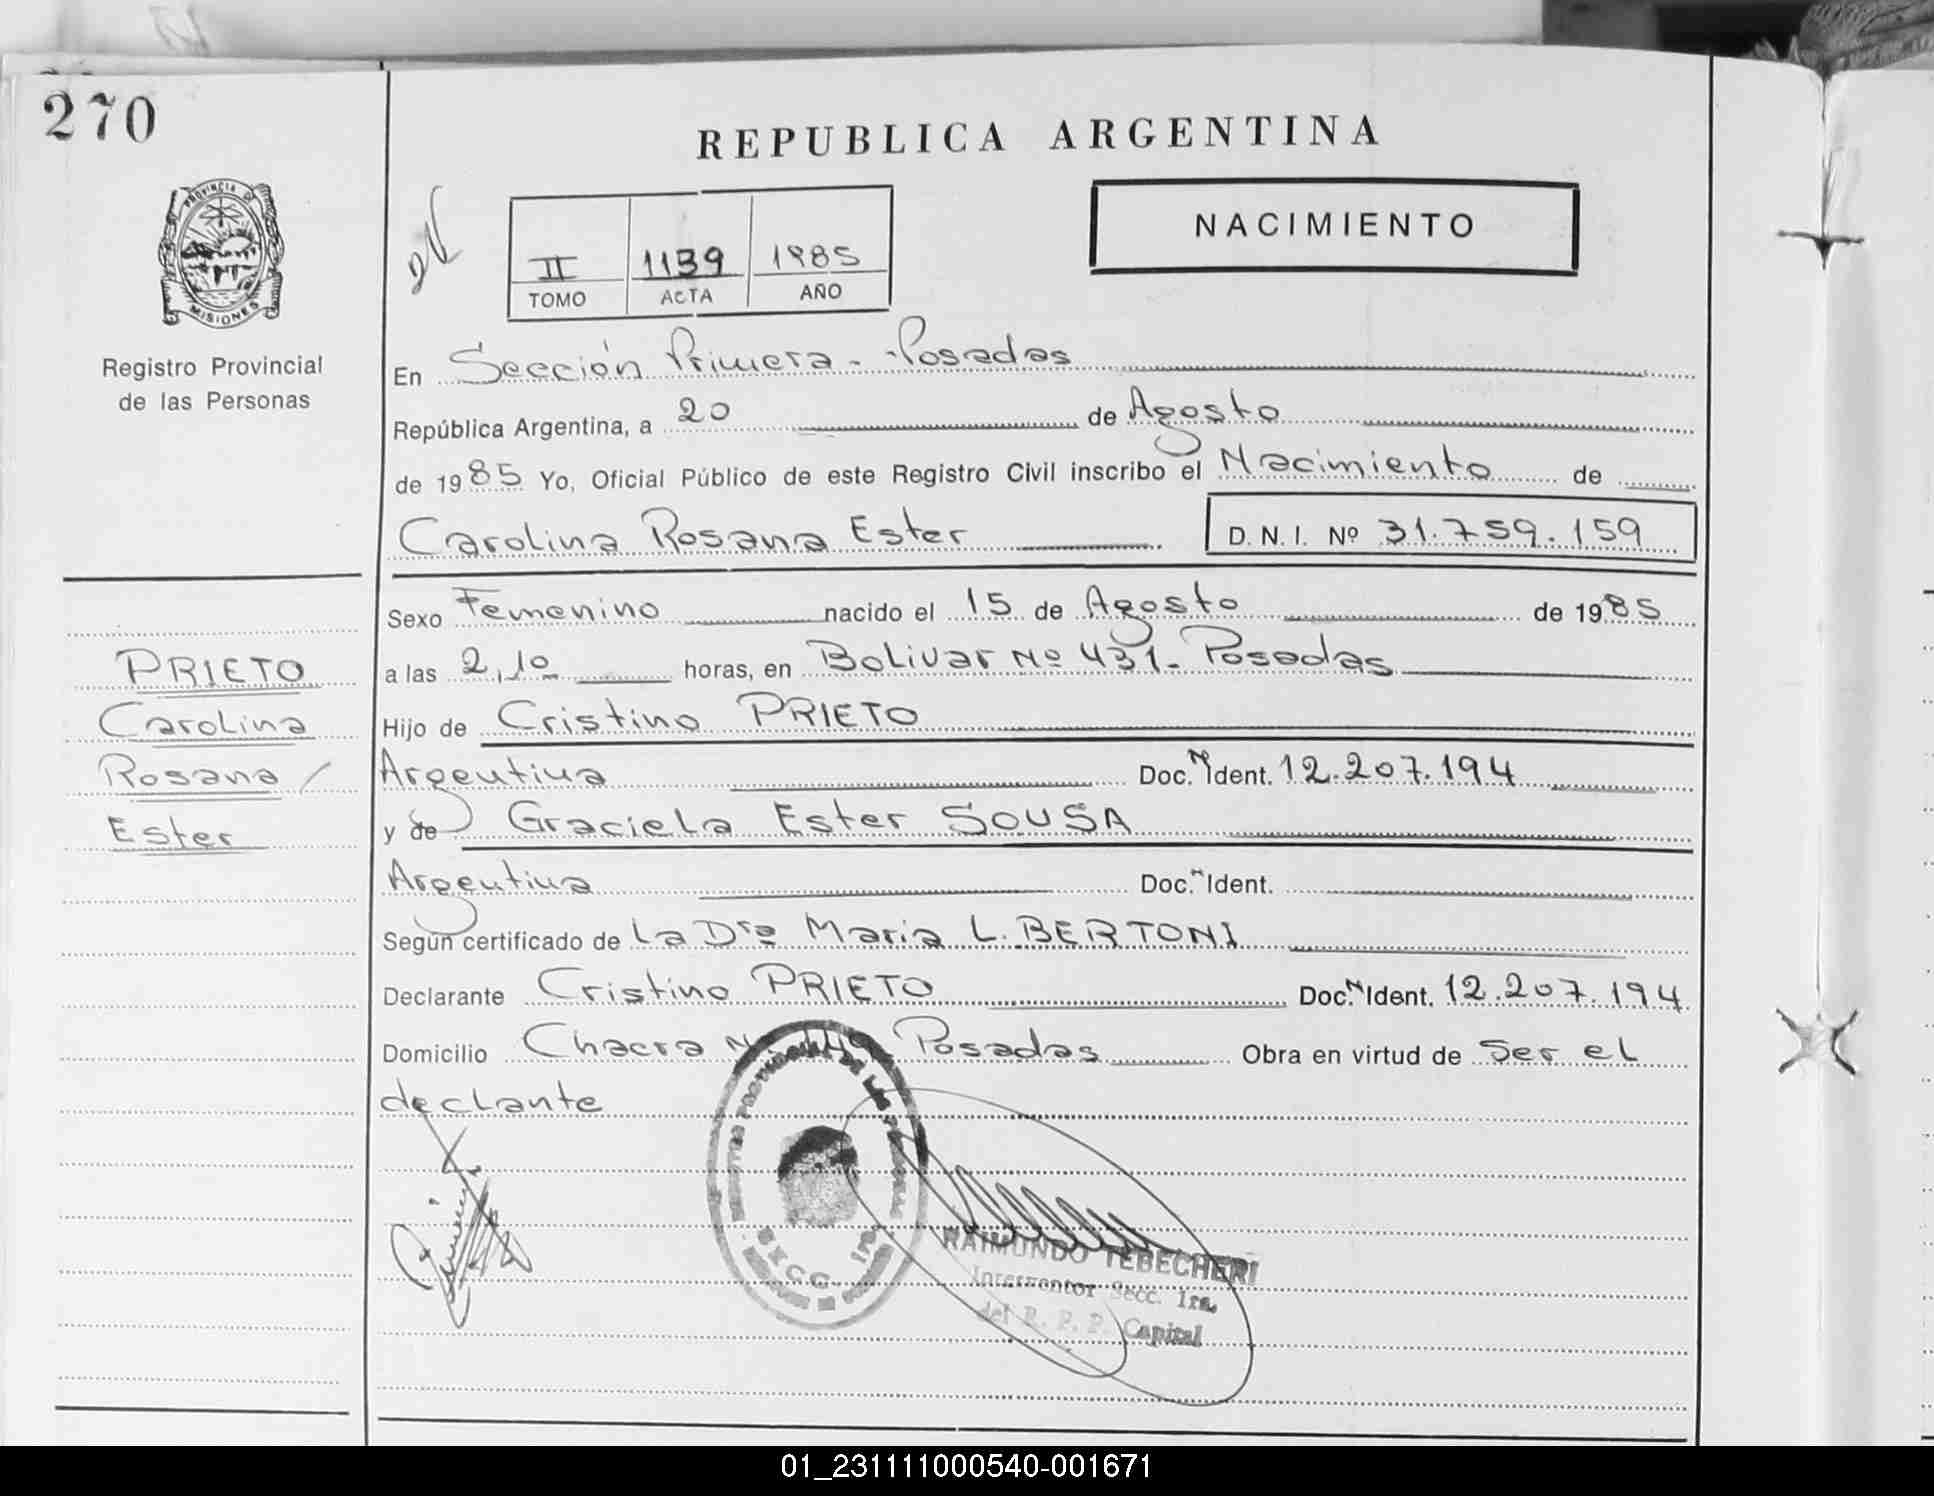 270
REPUBLICA ARGENTINA
PROVINCIA DE
MISIONES
Registro Provincial
de las Personas
II 1139 1985
TOMO ACTA AÑO
NACIMIENTO
En Sección Primera - Posadas
República Argentina, a 20 de Agosto
de 1985 Yo, Oficial Público de este Registro Civil inscribo el Nacimiento de
Carolina Rosana Ester D. N. I. Nº 31.759.159
Sexo Femenino nacido el 15 de Agosto de 1985
a las 2,10 horas, en Bolivar Nº 431- Posadas
Hijo de Cristino PRIETO
Argentina Doc. N Ident. 12.207.194
y de Graciela Ester SOUSA
Argentina Doc. N Ident.
Según certificado de La Dra Maria L. BERTONI
Declarante Cristino PRIETO Doc. N Ident. 12.207.194
Domicilio Chacra Posadas Obra en virtud de Ser el
declante
PRIETO
Carolina
Rosana /
Ester
SECC. 1ra.
RAIMUNDO TEBECHERI
Interventor Secc. 1ra.
del R. P. P. Capital
01_231111000540-001671